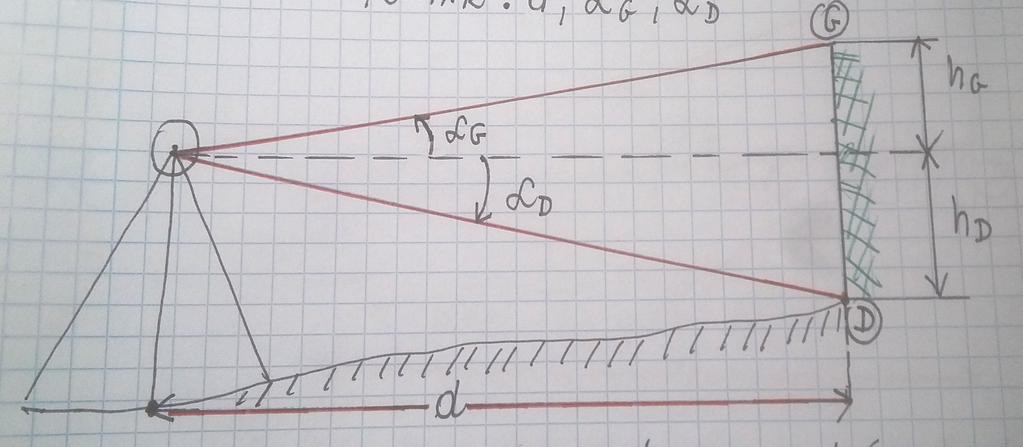 : d, αG, αD
G
hG
αG
αD
hD
D
d